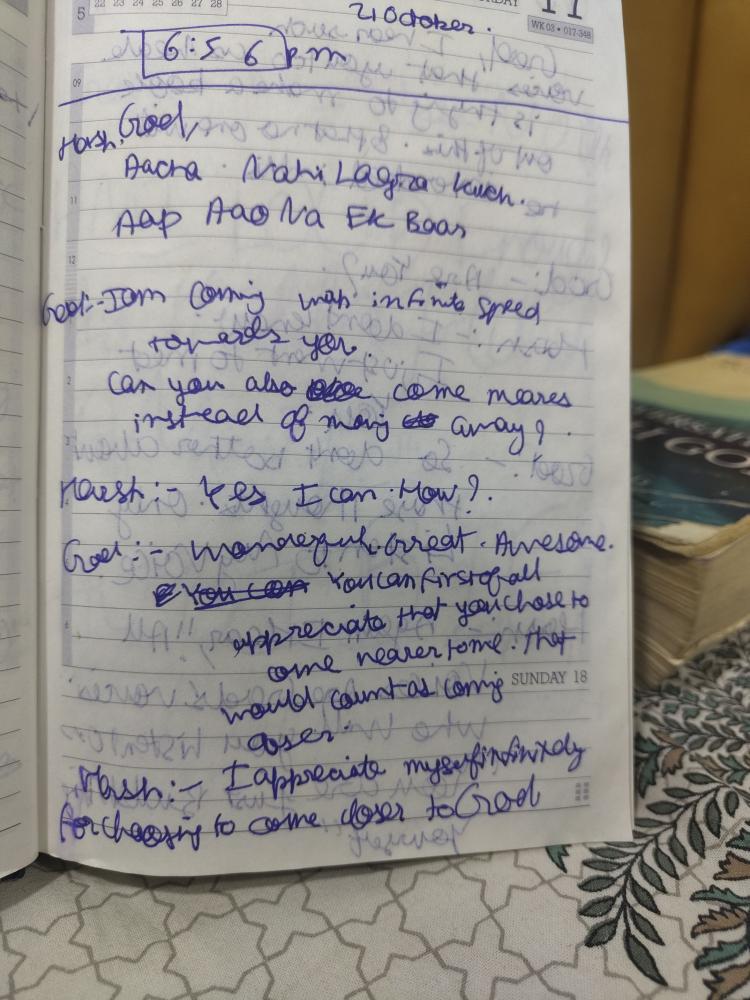 5
22 23 24 25 26 27 28
21 October.
11
WK 03 • 017-348
6:56 pm
09
Harsh: God,
Aacha. Nahi Lagta Kuch.
11
Aap Aao Na Ek Baar
12
God:- I am Coming with infinite speed
towards you.
2
Can you also come nearer
instead of moving away?
3
Harsh:- Yes I can. How?.
God:- Wonderful. Great. Awesome.
You can You can first of all
appreciate that you chose to
6
come nearer to me. That
would count as coming
SUNDAY 18
closer.
Harsh:- I appreciate myself infinitely
for choosing to come closer to God